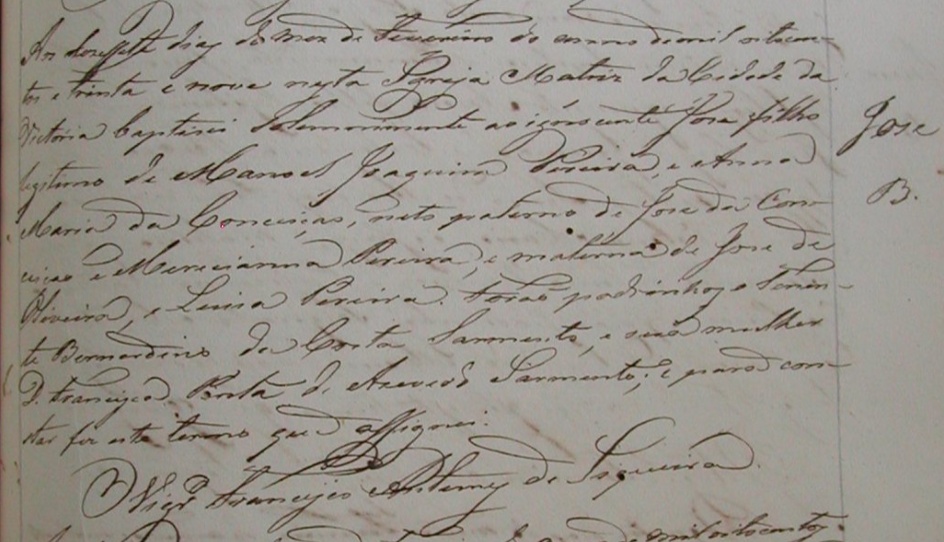 Aos desessete dias do mez de Fevereiro do anno de mil oitocen-
tos e trinta e nove nesta Igreja Matriz da Cidade da
Victoria baptisei Solemnimente ao ignocente Jose filho
Jose
legitimo de Manoel Joaquim Pereira, e Anna
B.
Maria da Conceiçao, neto paterno de Jose da Con-
ceiçao e Merecianna Pereira, e materno de Jose de
Oliveira, e Luisa Pereira. Forao padrinhos o Tenen-
te Bernardino da Costa Sarmento, e sua mulher
D. Francisca de Azevedo Sarmento; e para con-
star fiz este termo que assignei.
Vigr.º Francisco de Siqueira.
de mil oitocentos